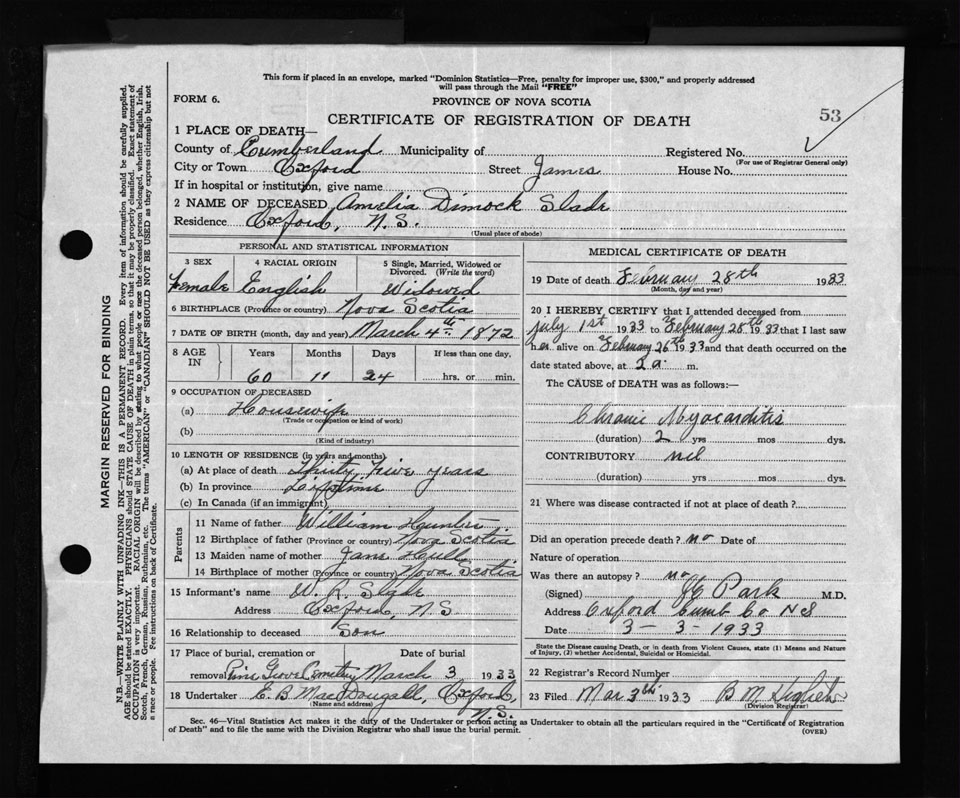 This form if placed in an envelope, marked "Dominion Statistics—Free, penalty for improper use, $300," and properly addressed
will pass through the Mail "FREE"
FORM 6.
PROVINCE OF NOVA SCOTIA
53
CERTIFICATE OF REGISTRATION OF DEATH
1 PLACE OF DEATH—
County of Cumberland Municipality of Registered No.
(For use of Registrar General only)
City or Town Oxford Street James House No.
If in hospital or institution, give name
2 NAME OF DECEASED Amelia Dimock Slade
Residence Oxford, N.S.
(Usual place of abode)
PERSONAL AND STATISTICAL INFORMATION
3 SEX 4 RACIAL ORIGIN 5 Single, Married, Widowed or
Divorced. (Write the word)
Female English Widowed
6 BIRTHPLACE (Province or country) Nova Scotia
7 DATE OF BIRTH (month, day and year) March 4th 1872
8 AGE IN Years Months Days If less than one day,
60 11 24 hrs. or min.
9 OCCUPATION OF DECEASED
(a) Housewife
(Trade or occupation or kind of work)
(b)
(Kind of industry)
10 LENGTH OF RESIDENCE (in years and months)
(a) At place of death Thirty Five years
(b) In province Lifetime
(c) In Canada (if an immigrant)
Parents
11 Name of father William Hunter
12 Birthplace of father (Province or country) Nova Scotia
13 Maiden name of mother Jane Hull
14 Birthplace of mother (Province or country) Nova Scotia
15 Informant's name W. R. Slade
Address Oxford, N S
16 Relationship to deceased Son
17 Place of burial, cremation or Date of burial
removal Pine Grove Cemetery March 3 1933
18 Undertaker E. B. MacDougall, Oxford,
(Name and address) N.S.
MEDICAL CERTIFICATE OF DEATH
19 Date of death February 28th 1933
(Month, day and year)
20 I HEREBY CERTIFY that I attended deceased from
July 1st 1933 to February 28th 1933 that I last saw
her alive on February 26th 1933 and that death occurred on the
date stated above, at 2 a. m.
The CAUSE of DEATH was as follows:
Chronic Myocarditis
(duration) 2 yrs mos dys.
CONTRIBUTORY nil
(duration) yrs. mos. dys.
21 Where was disease contracted if not at place of death?
Did an operation precede death? no Date of
Nature of operation
Was there an autopsy? no
(Signed) Park M.D.
Address Oxford Cumb Co N S
Date 3 - 3 - 1933
State the Disease causing Death, or in death from Violent Causes, state (1) Means and Nature
of Injury, (2) whether Accidental, Suicidal or Homicidal.
22 Registrar's Record Number
23 Filed Mar 3th 1933 B M
(Division Registrar)
Sec. 46—Vital Statistics Act makes it the duty of the Undertaker or person acting as Undertaker to obtain all the particulars required in the "Certificate of Registration
of Death" and to file the same with the Division Registrar who shall issue the burial permit.
(OVER)
MARGIN RESERVED FOR BINDING
N.B.—WRITE PLAINLY WITH UNFADING INK—THIS IS A PERMANENT RECORD. Every item of information should be carefully supplied.
AGE should be stated EXACTLY. PHYSICIANS should STATE CAUSE OF DEATH in plain terms, so that it may be properly classified. Exact statement of
OCCUPATION is very important. RACIAL ORIGIN will be described by stating to what people or race the deceased person belonged, whether English, Irish,
Scotch, French, German, Russian, Ruthenian, etc. The terms "AMERICAN" or "CANADIAN" SHOULD NOT BE USED as they express citizenship but not
a race or people. See instructions on back of Certificate.